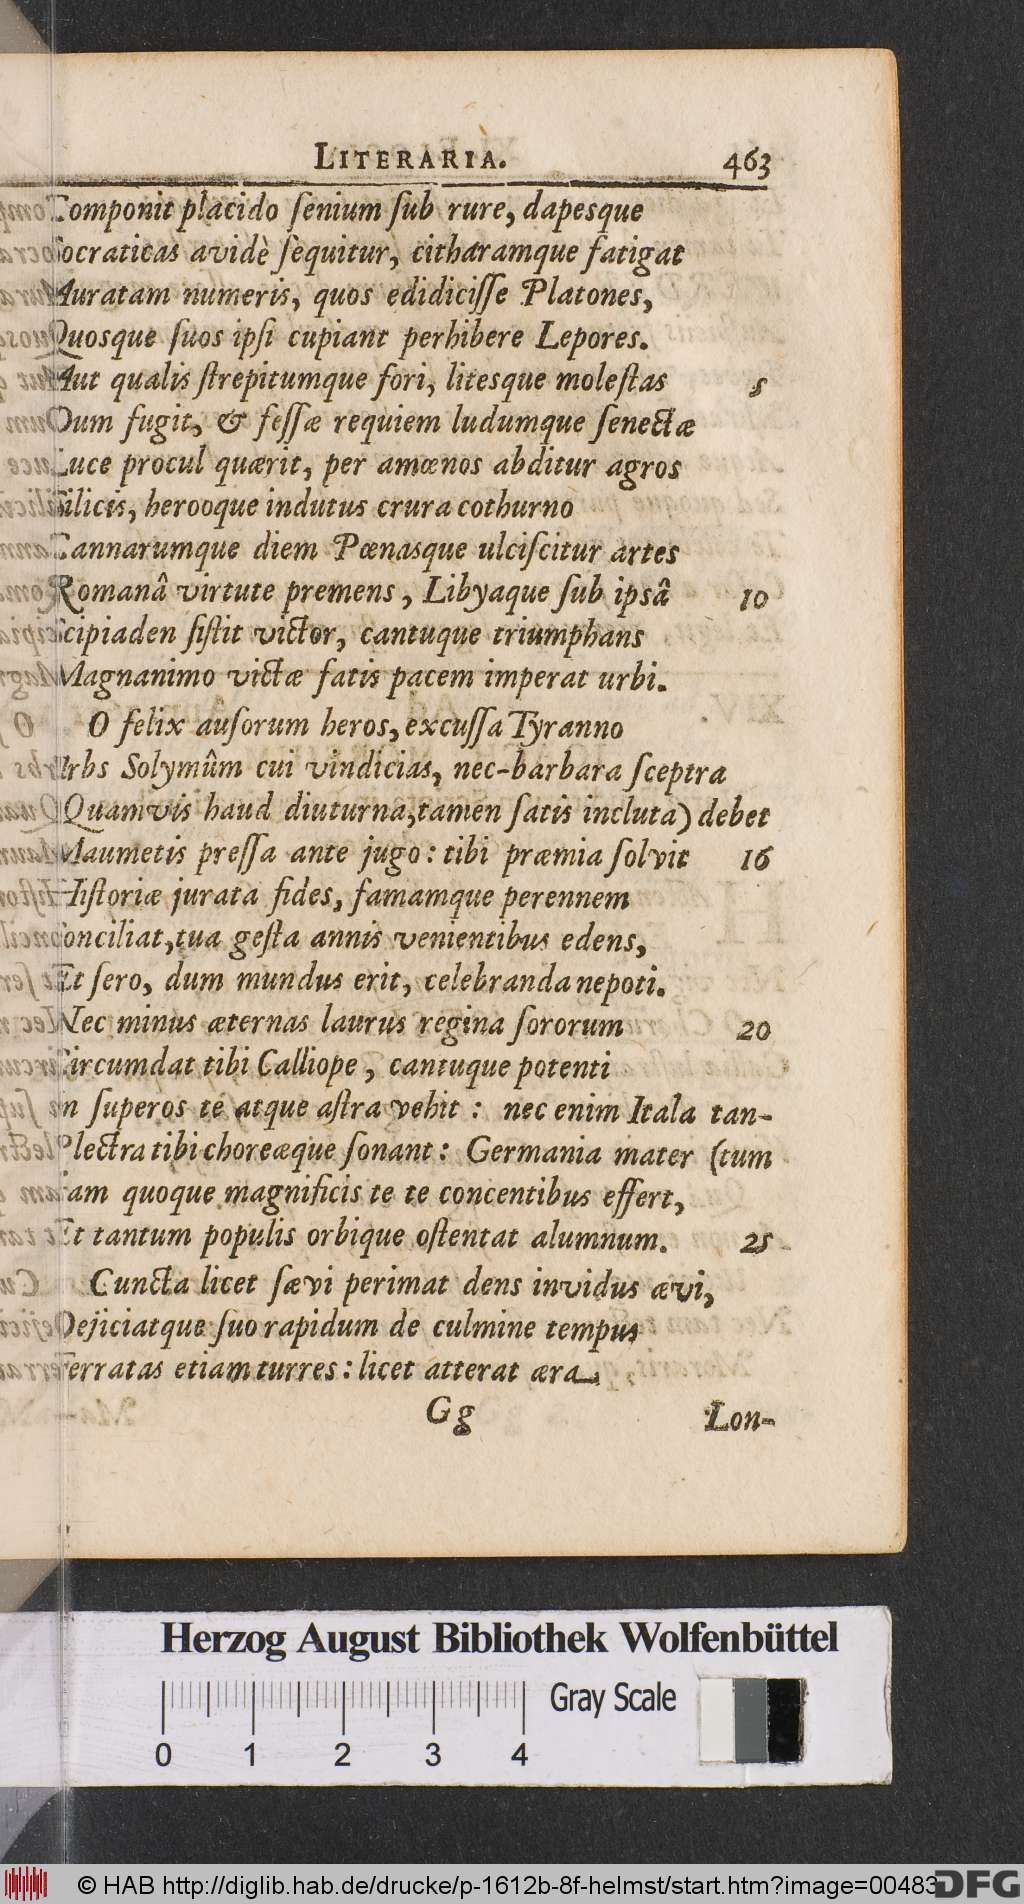 LITERARIA. 463
Componit placido ſenium ſub rure, dapesque
Socraticas avidè ſequitur, citharamque fatigat
Auratam numeris, quos edidiciſſe Platones,
Quosque ſuos ipſi cupiant perhibere Lepores.
Aut qualis ſtrepitumque fori, litesque moleſtas 5
Dum fugit, & feſſæ requiem ludumque ſenectæ
Luce procul quærit, per amœnos abditur agros
Silicis, herooque indutus crura cothurno
Cannarumque diem Pœnasque ulciſcitur artes
Romanâ virtute premens, Libyaque ſub ipsâ 10
Scipiaden ſiſtit victor, cantuque triumphans
Magnanimo victæ fatis pacem imperat urbi.
O felix auſorum heros, excuſſa Tyranno
Urbs Solymûm cui vindicias, nec-barbara ſceptra
(Quamvis haud diuturna, tamen ſatis incluta) debet
Maumetis preſſa ante jugo: tibi præmia ſolvit 16
Hiſtoriæ jurata fides, famamque perennem
Conciliat, tua geſta annis venientibus edens,
Et ſero, dum mundus erit, celebranda nepoti.
Nec minus æternas laurus regina ſororum 20
Circumdat tibi Calliope, cantuque potenti
In ſuperos te atque aſtra vehit: nec enim Itala tan-
Plectra tibi choreæque ſonant: Germania mater (tum
Jam quoque magnificis te te concentibus effert,
Et tantum populis orbique oſtentat alumnum. 25
Cuncta licet ſævi perimat dens invidus ævi,
Dejiciatque ſuo rapidum de culmine tempus
Ferratas etiam turres: licet atterat æra
Gg Lon-
Herzog August Bibliothek Wolfenbüttel
Gray Scale
0 1 2 3 4
© HAB http://diglib.hab.de/drucke/p-1612b-8f-helmst/start.htm?image=00483
DFG